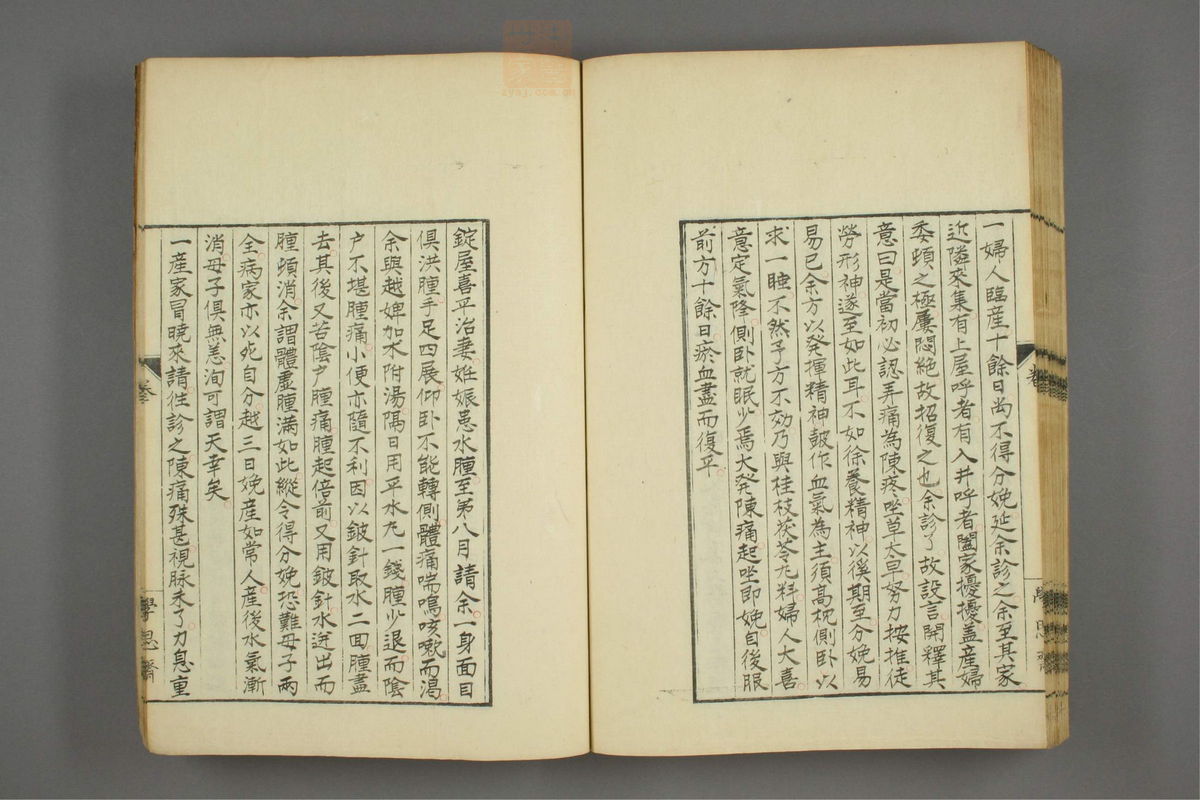 一婦人臨産十餘日尚不得分娩延余診之余至其家
近隣來集有上屋呼者有入井呼者闔家擾擾蓋産婦
委頓之極屢悶絶故招復之也余診了故設言開釋其
意曰是當初必認弄痛為陳疼坐草太早努力按推徒
勞形神遂至如此耳不如徐養精神以徯期至分娩易
易已余方以発揮精神皷作血氣為主須高枕側卧以
求一睡不然予方不効乃與桂枝茯苓丸料婦人大喜
意定氣降側卧就眠少焉大発陳痛起坐即娩自後服
前方十餘日瘀血盡而復平
錠屋喜平治妻妊娠患水腫至第八月請余一身面目
俱洪腫手足四展仰卧不能轉側體痛喘鳴咳嗽而渴
余與越婢加朮附湯隔日用平水丸一錢腫少退而陰
户不堪腫痛小便亦隨不利因以鈹針取水二回腫盡
去其後又苦陰户腫痛腫起倍前又用鈹針水迸出而
腫頓消余謂體虚腫満如此縱令得分娩恐難母子兩
全病家亦以死自分越三日娩産如常人産後水氣漸
消母子俱無恙洵可謂天幸矣
一産家冒曉來請往診之陳痛殊甚視脉未了力息重
卷三
學思齋